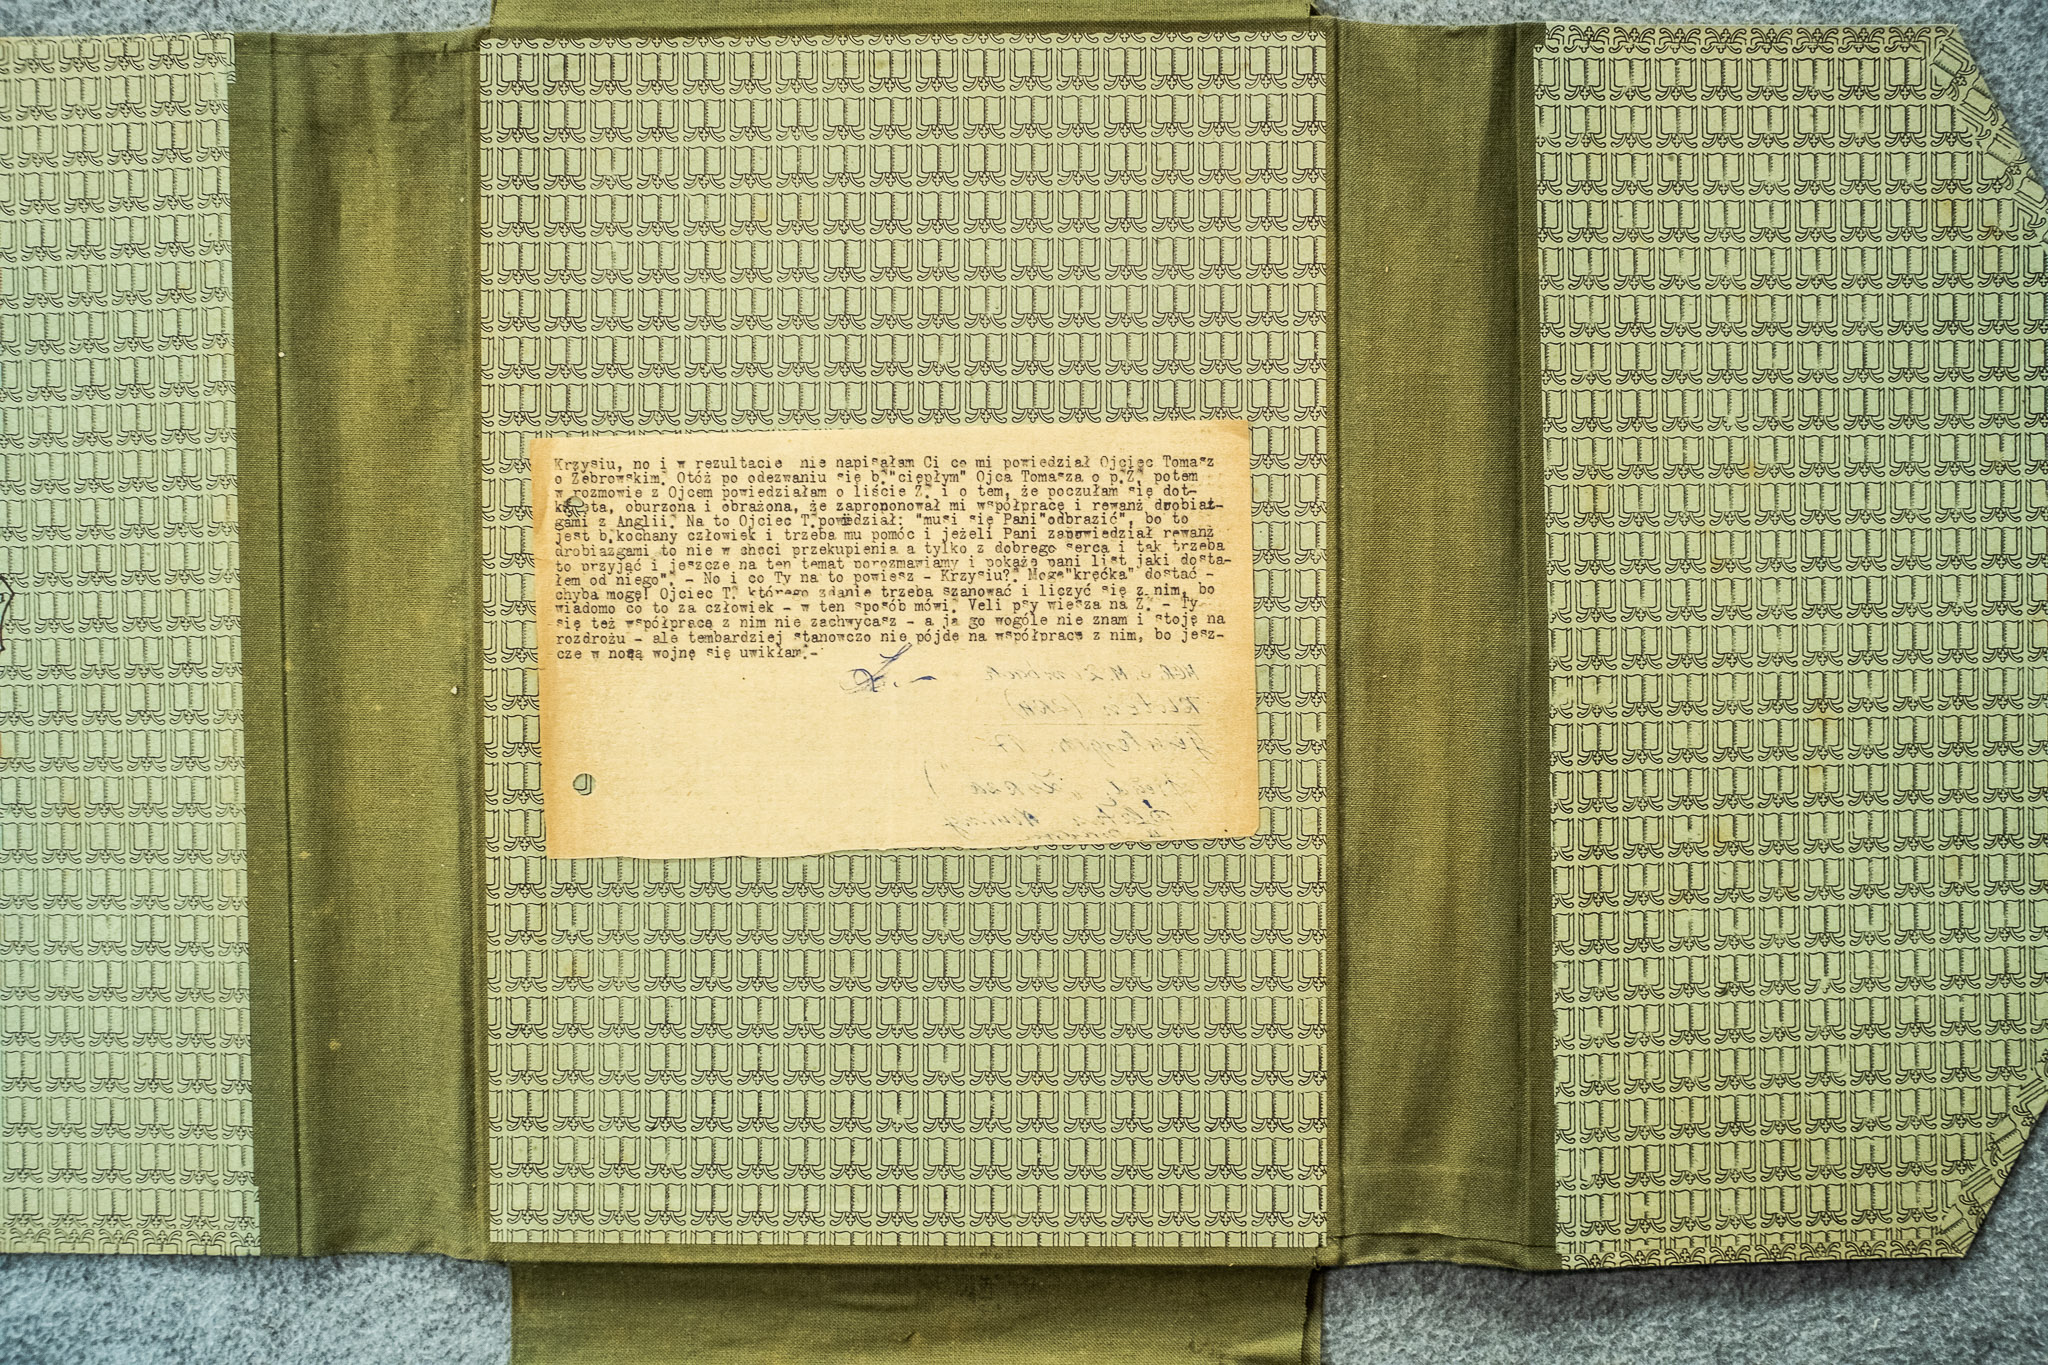 Krzysiu, no i w rezultacie nie napisałam Ci co mi powiedział Ojciec Tomasz
o Żebrowskim. Otóż po odezwaniu się b."ciepłym" Ojca Tomasza o p.Ż. potem
w rozmowie z Ojcem powiedziałam o liście Ż. i o tem, że poczułam się dot-
oburzona i obrażona, że zaproponował mi współpracę i rewanż drobiaz-
gami z Anglii. Na to Ojciec T.powiedział: "musi się Pani"odbrazić", bo to
jest b.kochany człowiek i trzeba mu pomóc i jeżeli Pani zapowiedział rewanż
drobiazgami to nie w chęci przekupienia a tylko z dobrego serca i tak trzeba
to przyjąć i jeszcze na ten temat porozmawiamy i pokażę pani list jaki dosta-
łem od niego". - No i co Ty na to powiesz - Krzysiu? Mogę"kręćka" dostać -
chyba mogę! Ojciec T. którego zdanie trzeba szanować i liczyć się z nim, bo
wiadomo co to za człowiek - w ten sposób mówi. Veli psy wiesza na Ż. - Ty
się też współpracą z nim nie zachwycasz - a ja go wogóle nie znam i stoję na
rozdrożu - ale tembardziej stanowczo nie pójdę na współpracę z nim, bo jesz-
cze w nową wojnę się uwikłam.-